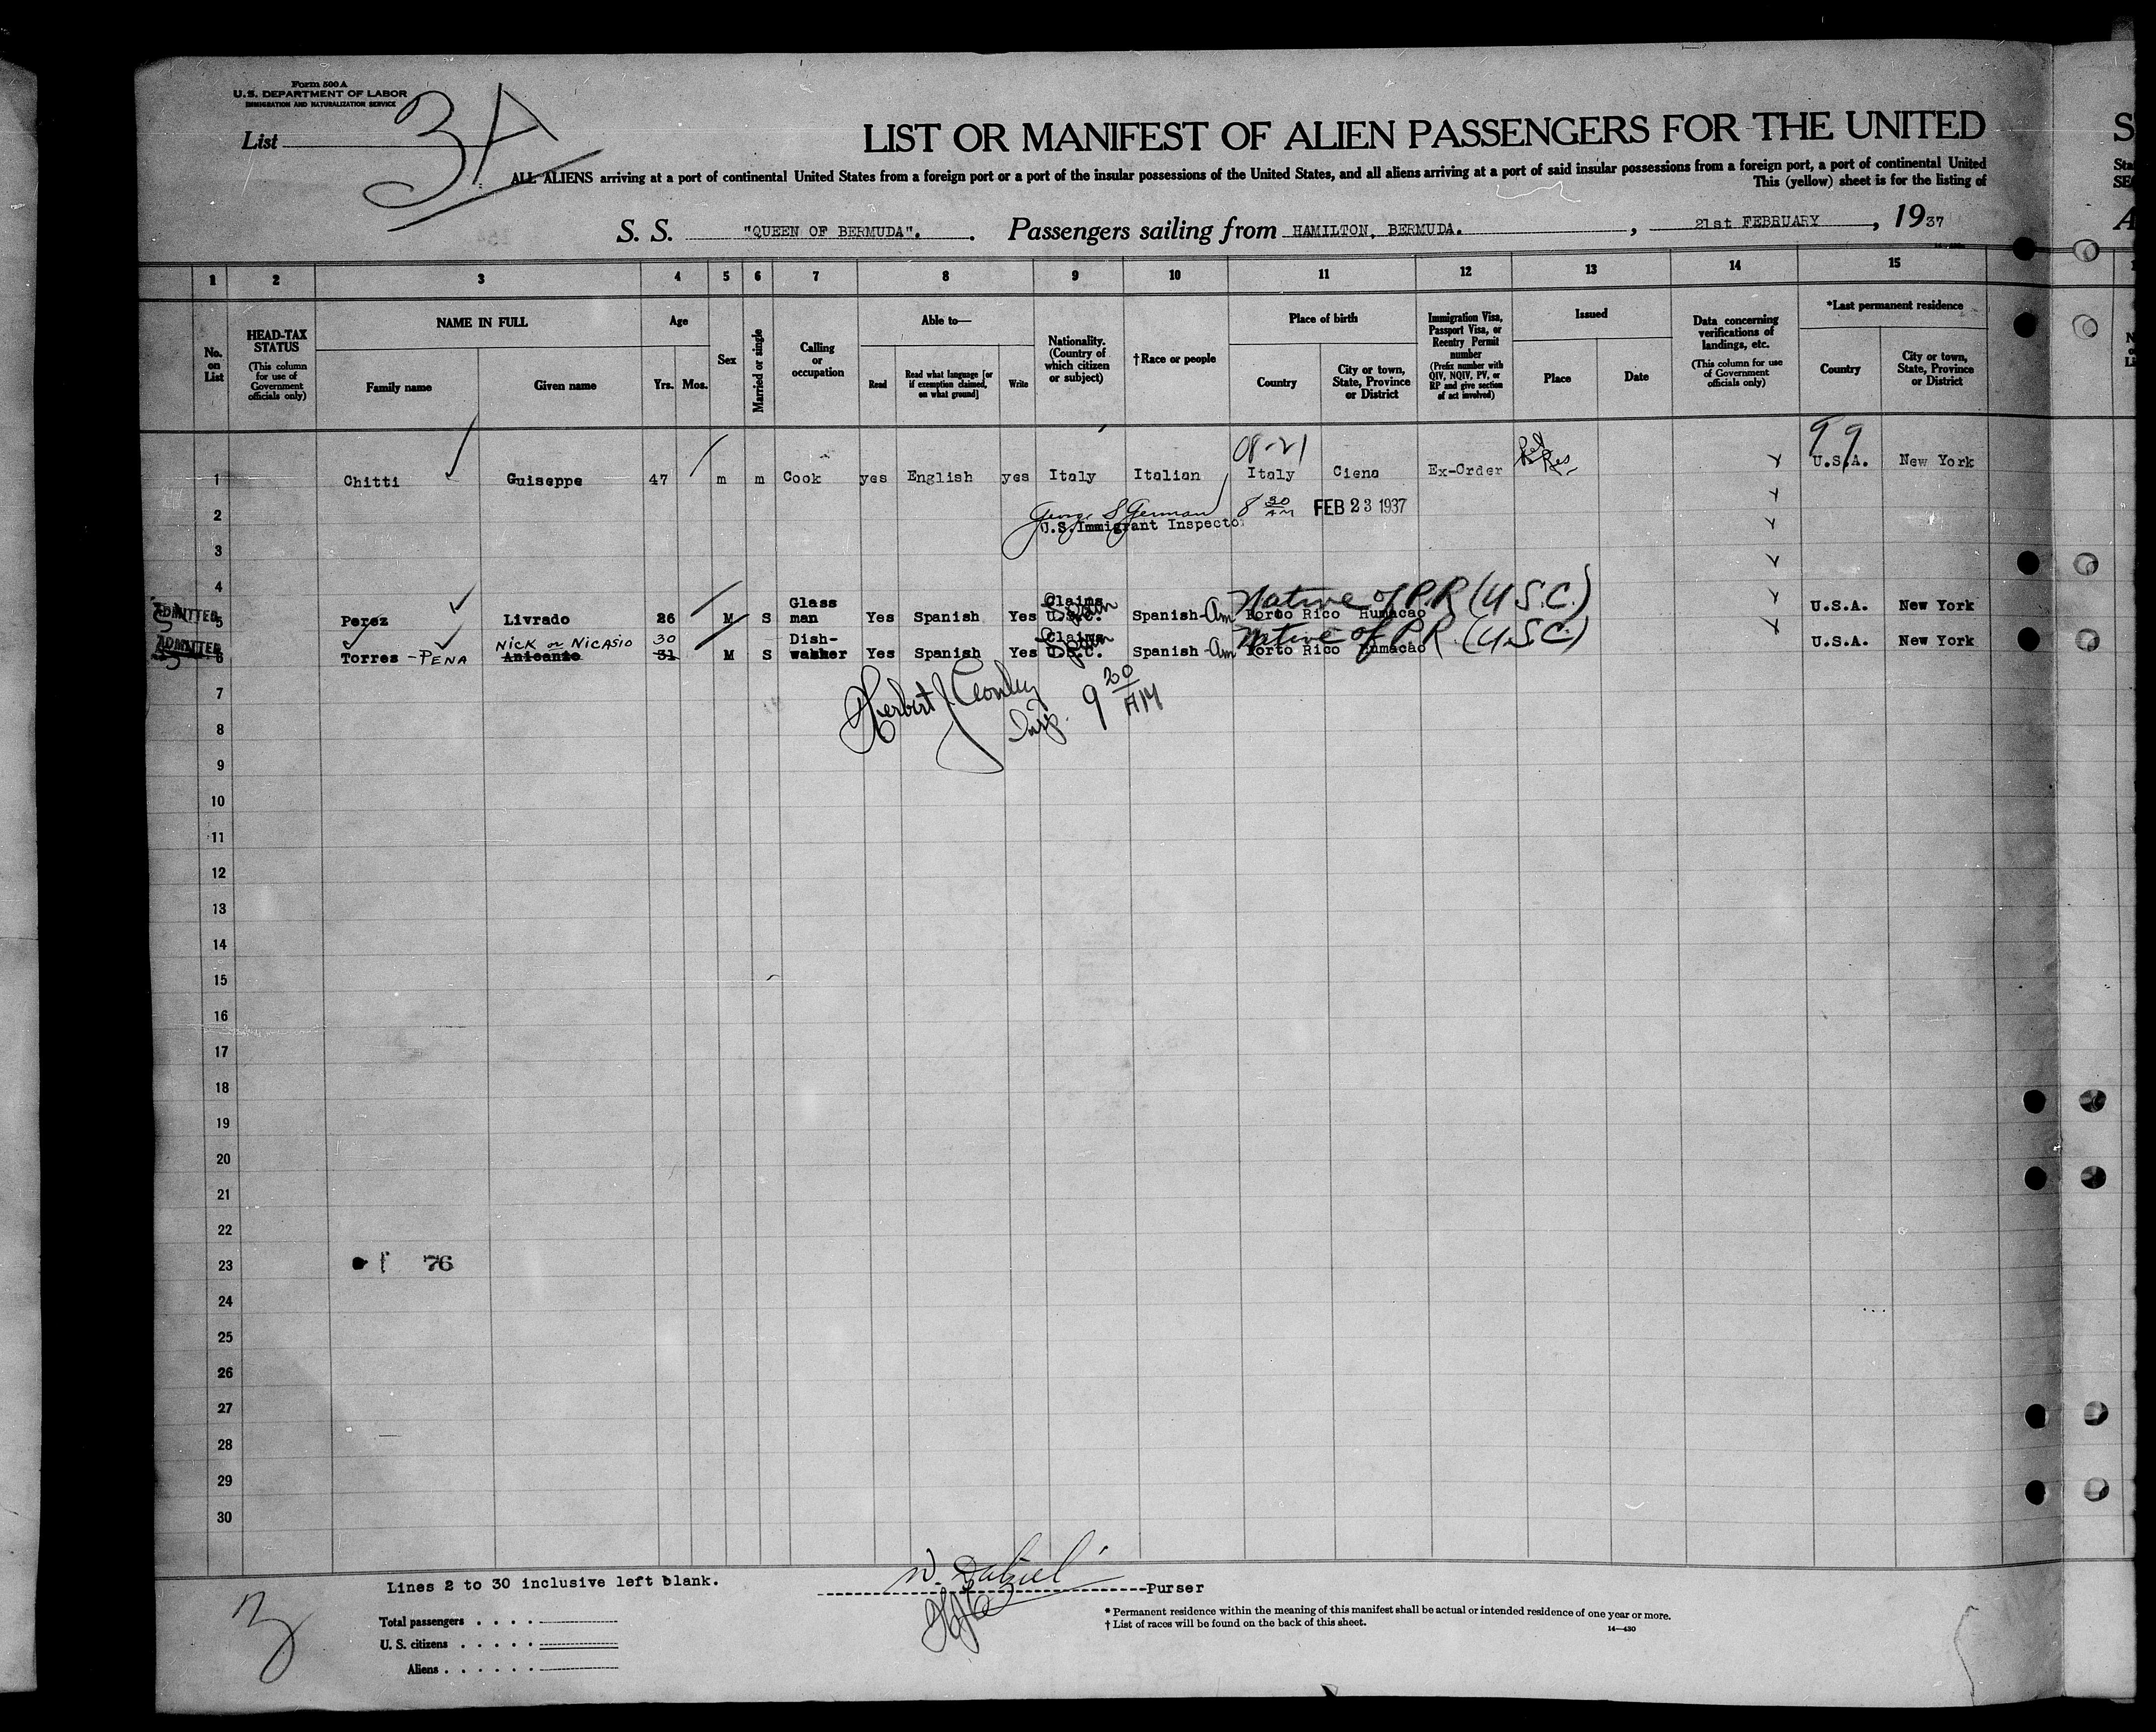 Form 500 A
U.S. DEPARTMENT OF LABOR
IMMIGRATION AND NATURALIZATION SERVICE
List 3A
LIST OR MANIFEST OF ALIEN PASSENGERS FOR THE UNITED
S
ALL ALIENS arriving at a port of continental United States from a foreign port or a port of the insular possessions of the United States, and all aliens arriving at a port of said insular possessions from a foreign port, a port of continental United
Sta
This (yellow) sheet is for the listing of
SE
S. S. "QUEEN OF BERMUDA". Passengers sailing from HAMILTON, BERMUDA. , 21st FEBRUARY , 1937
A
1 2 3 4 5 6 7 8 9 10 11 12 13 14 15
No. on List
HEAD-TAX STATUS (This column for use of Government officials only)
NAME IN FULL
Family name
Given name
Age
Yrs. Mos.
Sex
Married or single
Calling or occupation
Able to—
Read
Read what language [or if exemption claimed, on what ground]
Write
Nationality. (Country of which citizen or subject)
†Race or people
Place of birth
Country
City or town, State, Province or District
Immigration Visa, Passport Visa, or Reentry Permit number (Prefix number with QIV, NQIV, PV, or RP and give section of act involved)
Issued
Place
Date
Data concerning verifications of landings, etc. (This column for use of Government officials only)
*Last permanent residence
Country
City or town, State, Province or District
08-21
99
1 Chitti Guiseppe 47 m m Cook yes English yes Italy Italian Italy Ciena Ex-Order U.S.A. New York
2 George S German 8 30 AM FEB 23 1937
U.S. Immigrant Inspector
3
4
Native of P.R (U.S.C.)
ADMITTED 5 Perez Livrado 26 M S Glass man Yes Spanish Yes Claims U.S.C. Spain Spanish-Am Porto Rico Humacao U.S.A. New York
Nick or Nicasio 30
Native of P.R. (U.S.C)
ADMITTED 6 Torres - PENA Anicanto 31 M S Dish-washer Yes Spanish Yes Claims U.S.C. Spain Spanish-Am Porto Rico Humacao U.S.A. New York
7
Herbert J Conley
Insp. 9 20 AM
8
9
10
11
12
13
14
15
16
17
18
19
20
21
22
23 76
24
25
26
27
28
29
30
Lines 2 to 30 inclusive left blank.
Purser
3
Total passengers
U. S. citizens
Aliens
* Permanent residence within the meaning of this manifest shall be actual or intended residence of one year or more.
† List of races will be found on the back of this sheet.
14—430